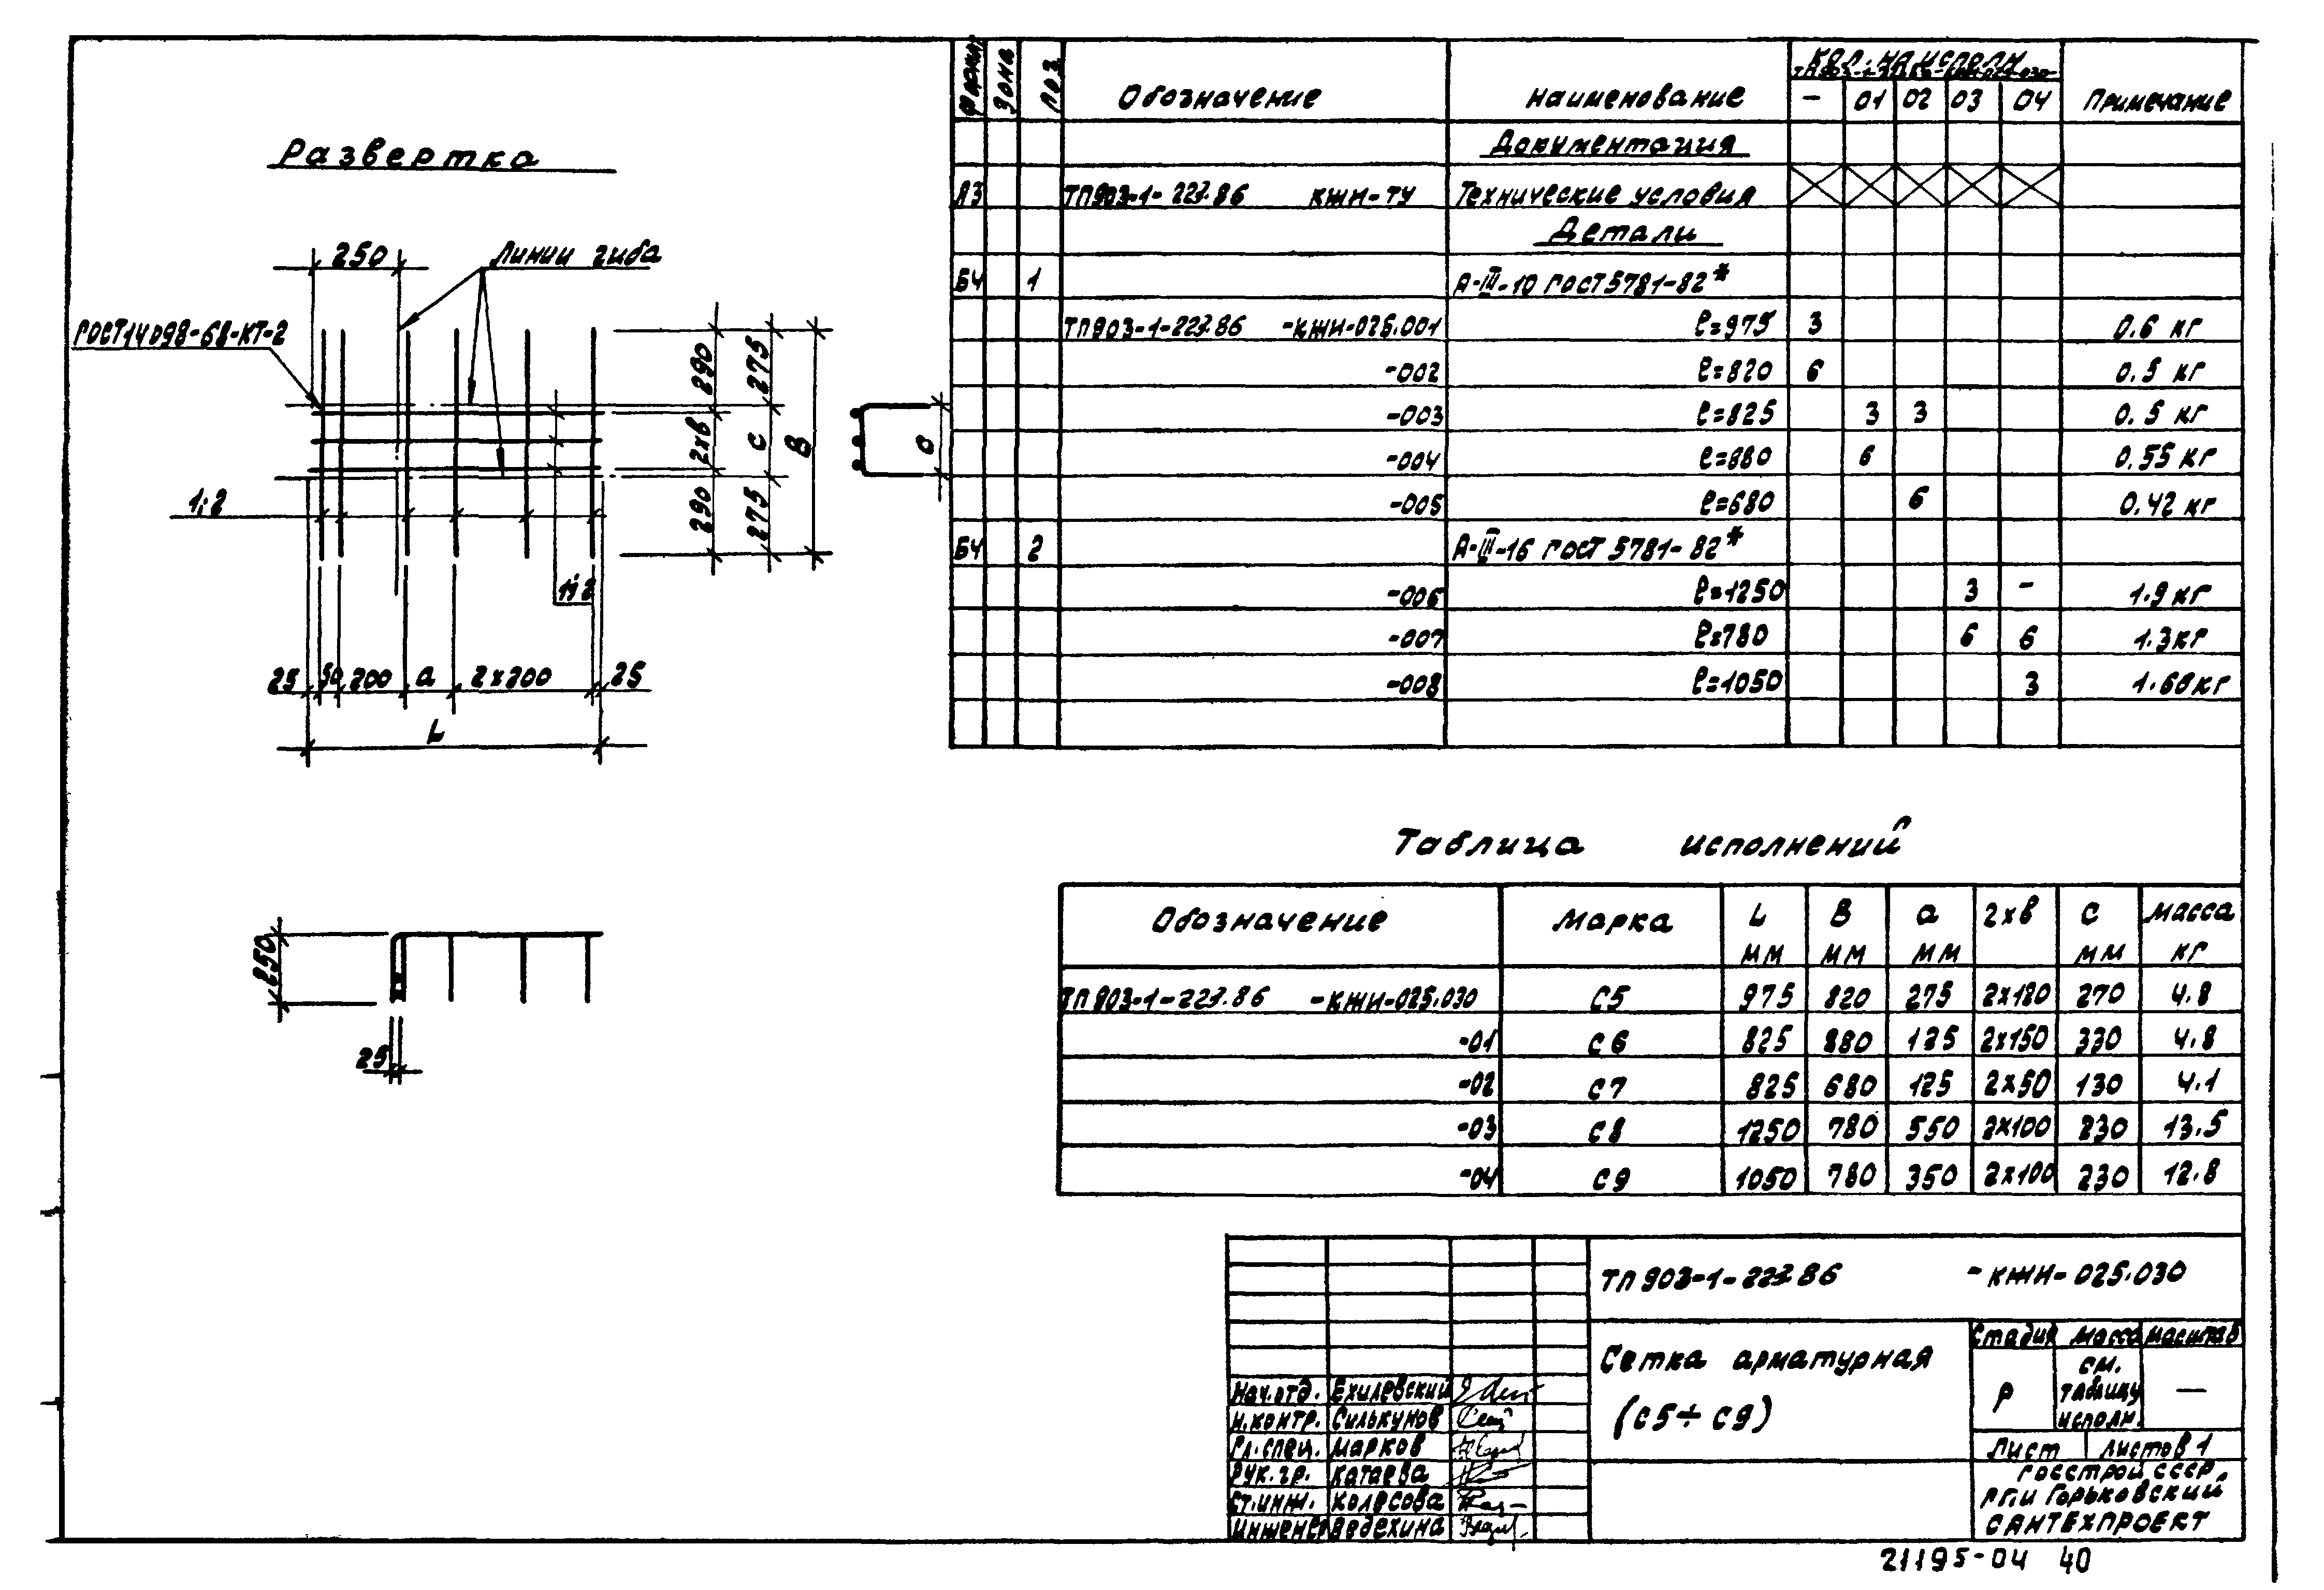 Развертка
250
Линии гиба
ГОСТ14098-68-КТ-2
290
275
2хв
С
В
290
275
1;2
1;2
25 50 200 а 2х200 25
L
С
250
25
Форм. Зона Поз. Обозначение Наименование Кол. на исполн. Примечание
- 01 02 03 04
Документация
А3 ТП903-1-227.86 КЖИ-ТУ Технические условия
Детали
БЧ 1 А-III-10 ГОСТ5781-82*
ТП903-1-227.86 -КЖИ-025.001 ℓ=975 3 0.6 кг
-002 ℓ=820 6 0.5 кг
-003 ℓ=825 3 3 0.5 кг
-004 ℓ=880 6 0.55 кг
-005 ℓ=680 6 0.42 кг
БЧ 2 А-III-16 ГОСТ 5781-82*
-006 ℓ=1250 3 - 1.9 кг
-007 ℓ=780 6 6 1.3 кг
-008 ℓ=1050 3 1.66 кг
Таблица исполнений
Обозначение Марка L мм В мм а мм 2хв С мм Масса кг
ТП903-1-227.86 -КЖИ-025.030 С5 975 820 275 2х120 270 4.8
-01 С6 825 880 125 2х150 330 4.8
-02 С7 825 680 125 2х50 130 4.1
-03 С8 1250 780 550 2х100 230 13.5
-04 С9 1050 780 350 2х100 230 12.8
ТП 903-1-227.86 -КЖИ-025.030
Сетка арматурная
(С5÷С9)
Стадия Масса Масштаб
Р см. таблицу исполн. —
Лист Листов 1
Госстрой СССР
ГПИ Горьковский
САНТЕХПРОЕКТ
Нач.отд. Ехилевский
Н.контр. Силькунов
Гл.спец. Марков
Рук.гр. Катаева
Ст.инж. Колесова
Инженер Авдехина
21195-04 40